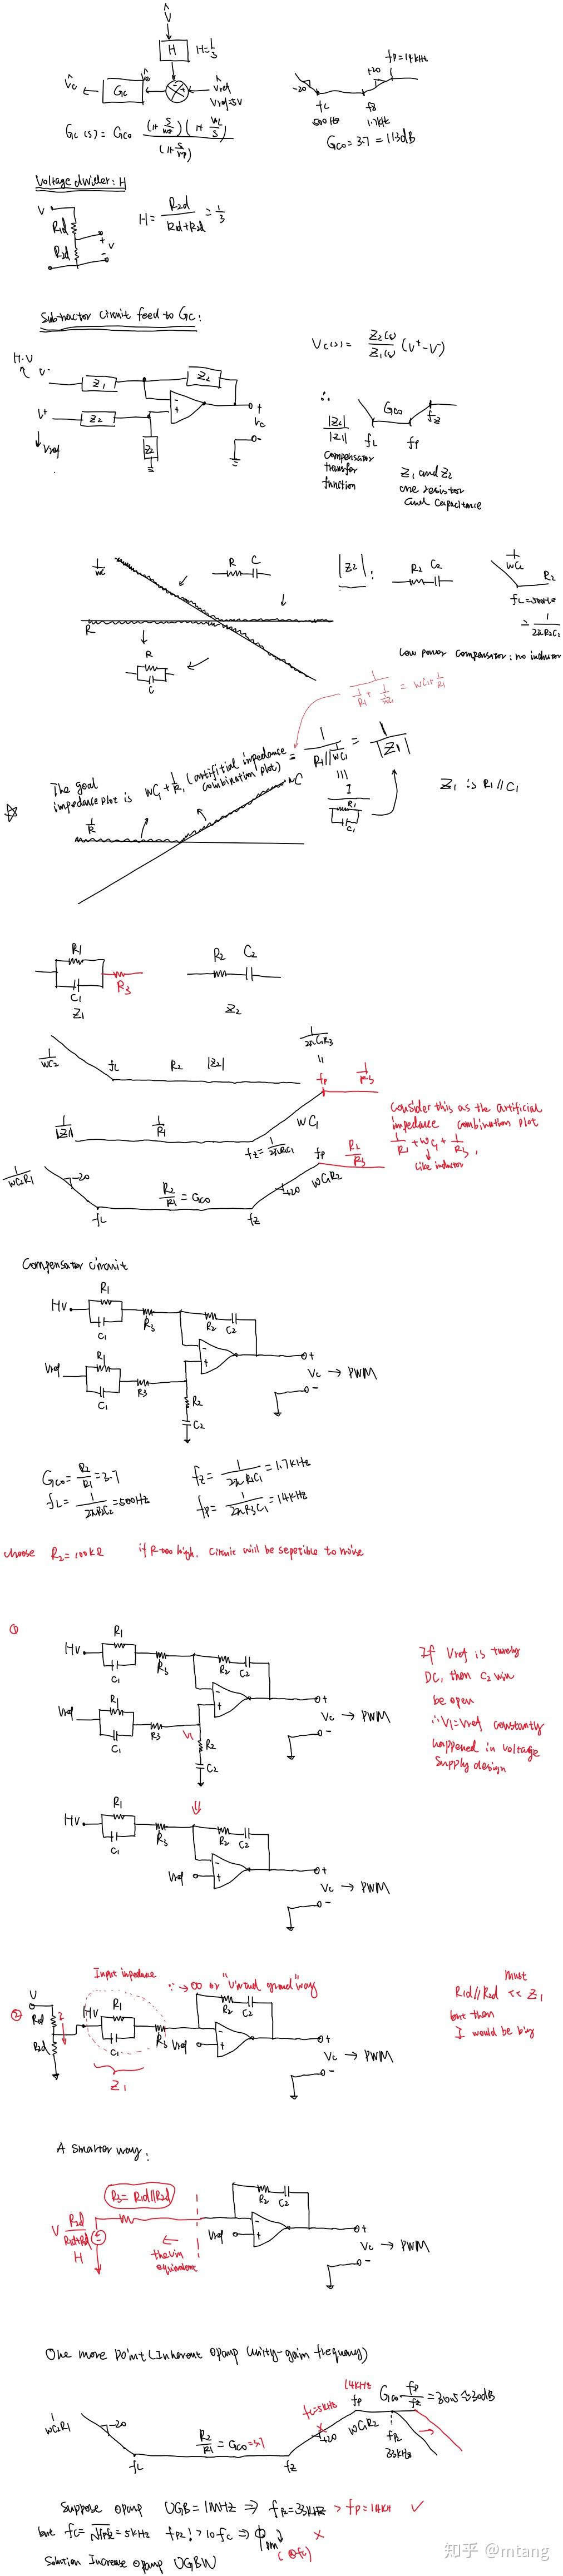 V̂
H H=1/3
V̂c ← Gc V̂e V̂ref
Vref=5V
-20 fL 500Hz fz 1.7kHz +20 fp=14kHz
Gc(s)= Gco (1+s/wz)(1+wL/s) / (1+s/wp)
Gco=3.7=11.3dB
Voltage divider: H
V R1d R2d + V -
H= R2d/(R1d+R2d) = 1/3
Subtractor circuit feed to Gc:
Vc(s)= Z2(s)/Z1(s) (V+-V-)
H·V V- Z1 Z2
V+ Z2 Z2 Vref
+ Vc 0-
∴ |Z2|/|Z1| Gco fL fp fz
Compensator
transfer
function
Z1 and Z2
are resistor
and capacitance
1/wc R C
R
R C
|Z2|: R2 C2
1/wC2 R2
fL=500Hz
= 1/2πR2C2
Low power compensator: no inductor
1/(1/R1 + 1/(1/wC1)) = wC1+1/R1
The goal
impedance plot is wC1+1/R1 (artifitial impedance
combination plot)
= 1/(R1//1/wC1) = 1/|Z1|
1/R C
R1 C1
Z1 is R1//C1
R1 C1 R3 Z1
R2 C2 Z2
1/wC2 fL R2 |Z2|
1/2πC1R3 = fp 1/R3
1/|Z1| 1/R1 fz=1/2πR1C1 wC1
Consider this as the artificial
impedance combination plot
1/R1 + wC1 + 1/R3,
like inductor
1/wC2R1 -20 fL R2/R1=Gco fz +20 wC1R2 fp R2/R3
Compensator circuit
HV R1 C1 R3 R2 C2
Vref R1 C1 R3 R2 C2
0+ Vc → PWM 0-
Gco=R2/R1=3.7 fz= 1/2πR1C1=1.7kHz
fL= 1/2πR2C2=500Hz fp= 1/2πR3C1=14kHz
choose R2=100kΩ if R too high. Circuit will be
①
HV R1 C1 R3 R2 C2
Vref R1 C1 R3 V1 R2 C2
0+ Vc → PWM 0-
If Vref is
DC, then C2 will
be open
∴V1=Vref constantly
happened in voltage
supply design
HV R1 C1 R3 R2 C2
Vref
0+ Vc → PWM 0-
② V R1d R2d HV R1 C1 R3 Z1
Input impedance ∵ → ∞ or "virtual ground" way
R2 C2 Vref
0+ Vc → PWM 0-
must
R1d//R2d << Z1
but then
I would be big
A smarter way:
R3= R1d//R2d
V R2d/(R1d+R2d) H
thevin
equivalent
R2 C2 Vref
0+ Vc → PWM 0-
One more point (Inherent opamp unity-gain frequency)
1/wC2R1 -20 fL R2/R1=Gco=3.7 fz fc=5kHz +20 wC1R2
14kHz fp Gco fp/fz =30.5≈30dB
fp2 33kHz
Suppose opamp UGB=1MHz ⇒ fp2=33kHz > fp=14kH ✓
but fc=√fzfp=5kHz fp2 !>10fc ⇒ φpm↓ ×
(@fc)
Solution Increase opamp UGBW
知乎 @mtang